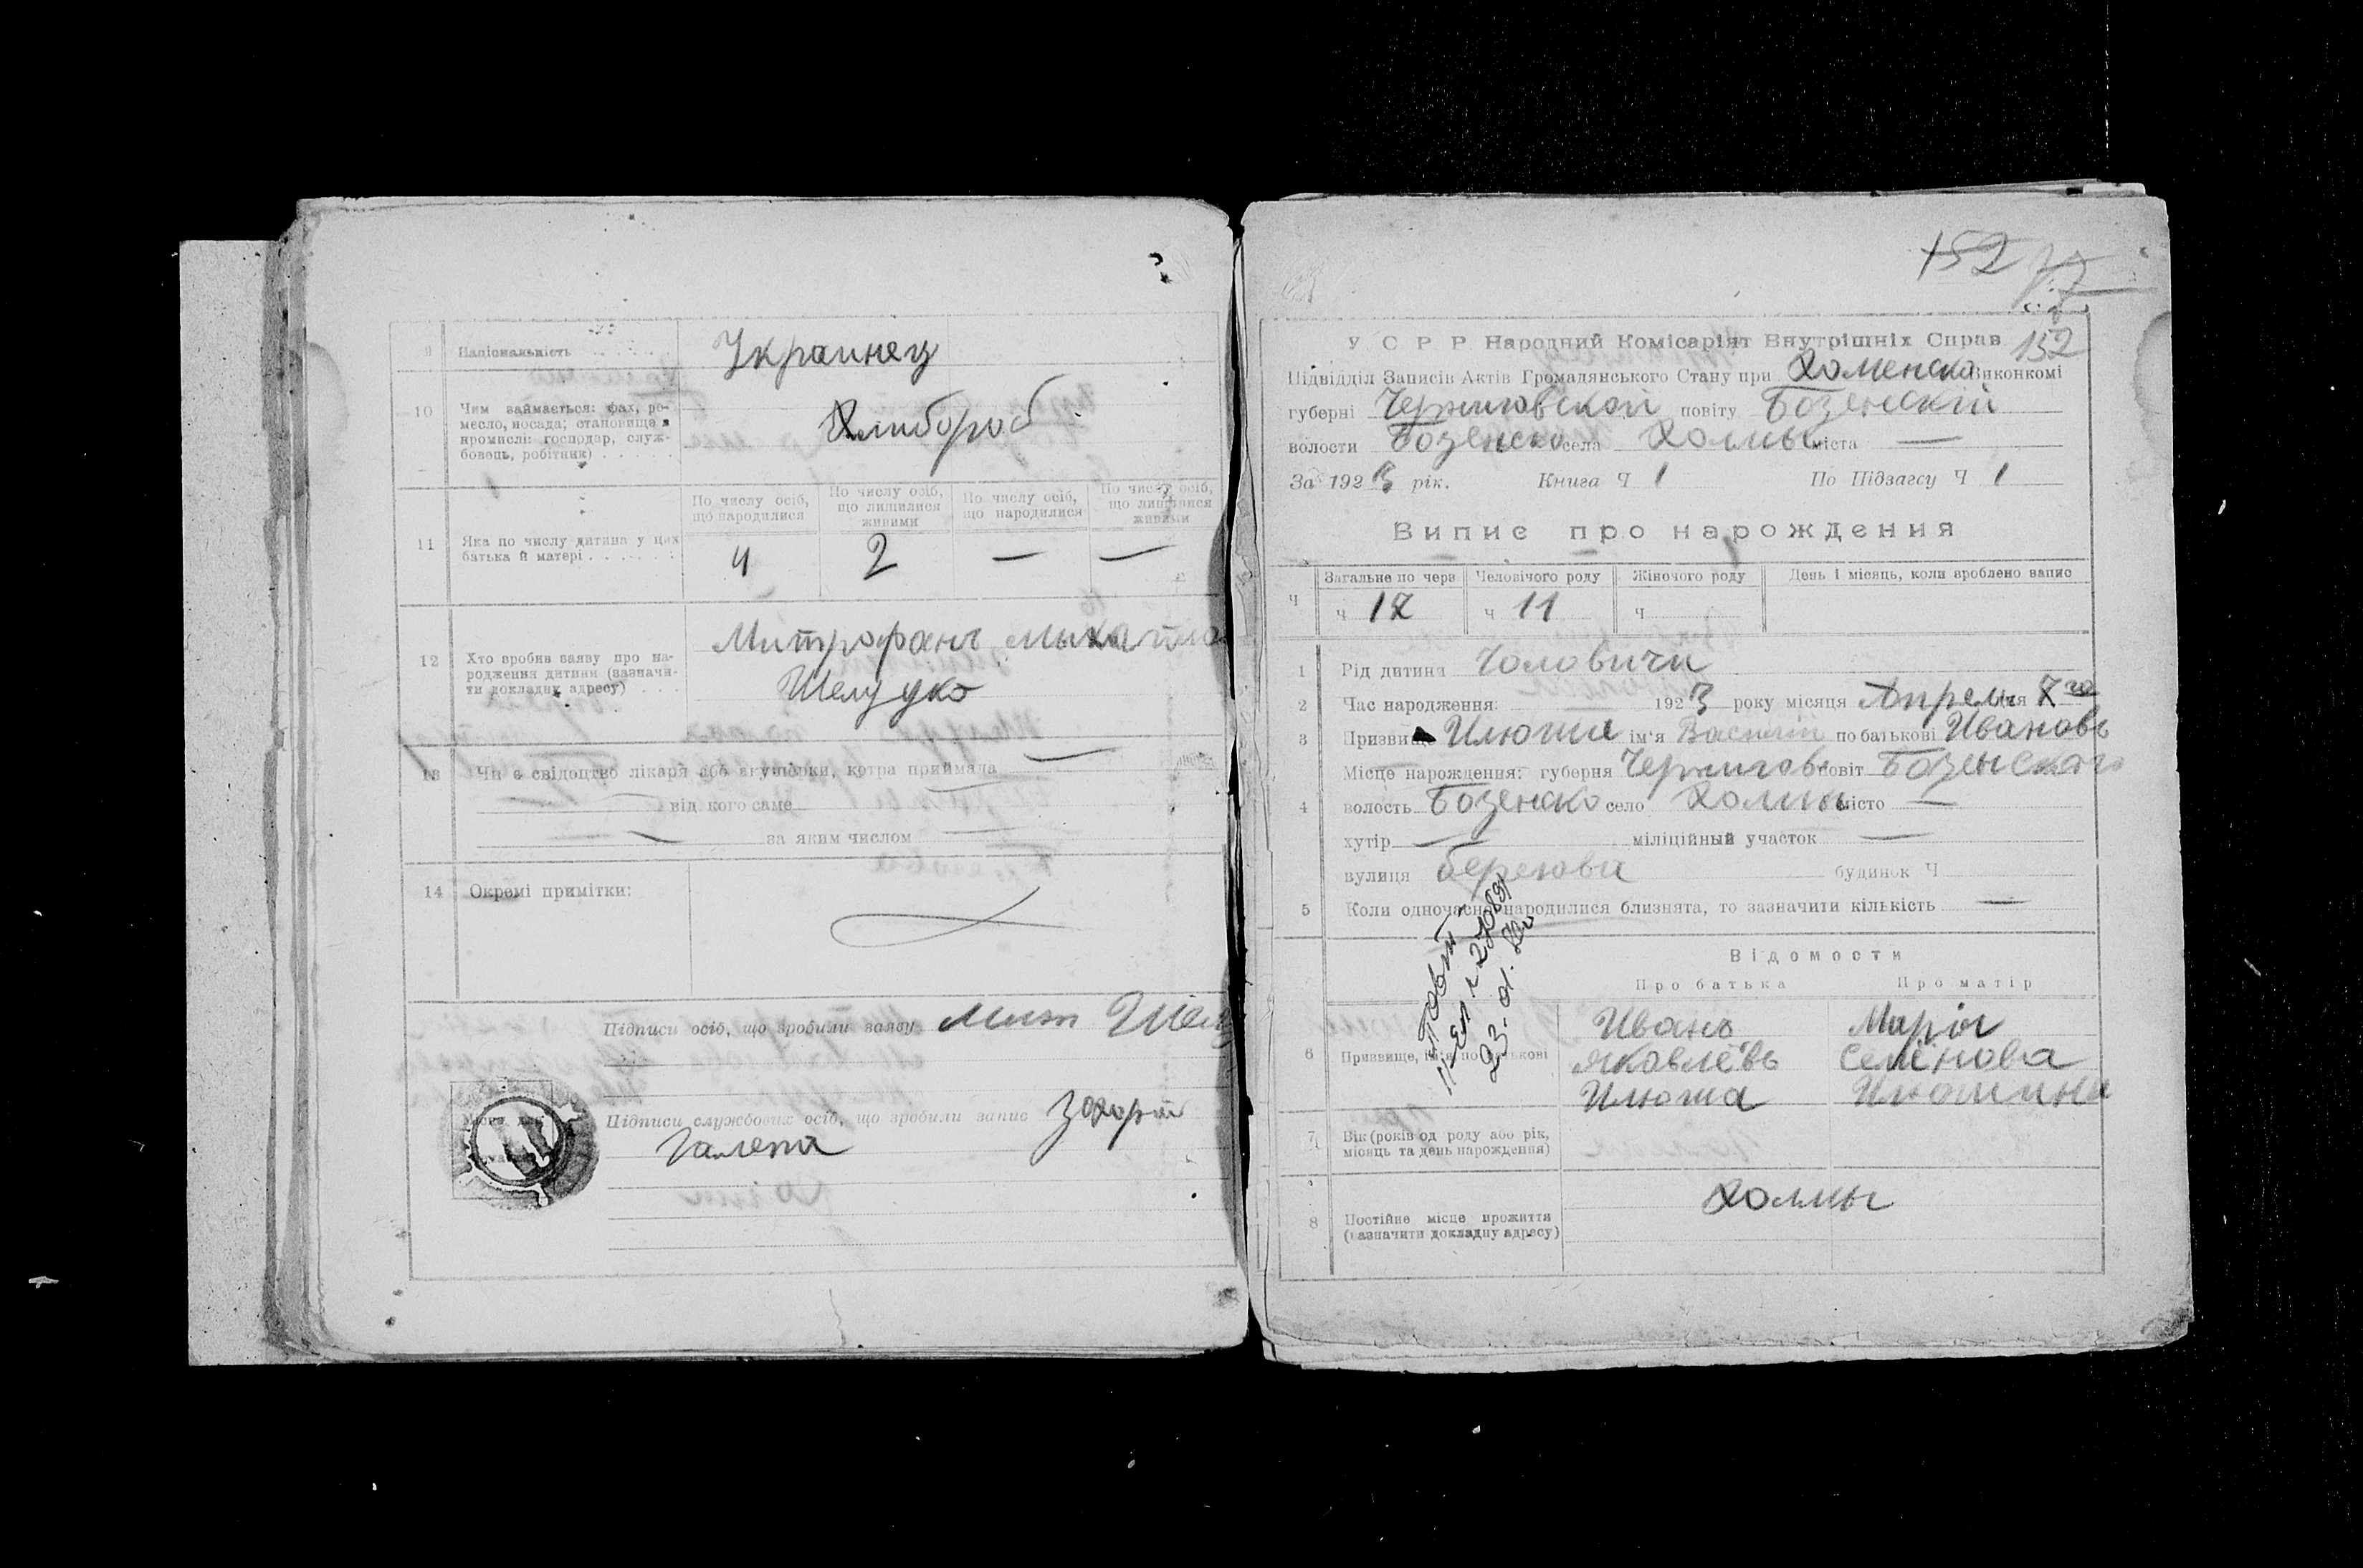 9 Національність
Украинец
10 Чим займається: фах, ре-
месло, посада; становище в
промислі: господар, служ-
бовець, робітник)
Хлибороб
По числу осіб, що народилися
По числу осіб, що лишилися живими
По числу осіб, що народилися
По числу осіб, що лишилися живими
11 Яка по числу дитина у цих
батька й матері
4 2 — —
12 Хто зробив заяву про на-
родження дитини (зазначи-
ти докладну адресу)
Митрофанъ
13 Чи є свідоцтво лікаря або акушорки, котра приймала —
— від кого саме —
— за яким числом —
14 Окремі примітки:
Підписи осіб, що зробили заяву Мит
Підписи службових осіб, що зробили запис
152
У С Р Р Народний Комісаріят Внутрішніх Справ 152
Підвідділ Записів Актів Громадянського Стану при Хоменско Виконкомі
губерні Черниговской повіту Бозенский
волости Бозенско села Холмы міста —
За 1923 рік. Книга Ч 1 По Підзагсу Ч 1
Випис про нарождення
Ч Загальне по черв Человічого роду Жіночого роду День і місяць, коли зроблено запис
ч 17 ч 11 ч
1 Рід дитини Чоловичи
2 Час народження: 1923 року місяця Апреля дня 7го
3 Призвище Илюша ім'я Василий по батькові Ивановъ
Місце нарождення: губерня Чернигов повіт Бозенского
4 волость Бозенско село Холмы місто —
хутір — міліційный участок —
вулиця березова будинок Ч
5 Коли одночасно народилися близнята, то зазначити кількість —
Відомости
Про батька Про матір
6 Призвище, ім'я по батькові
Иванъ Марія
Яковлевъ Семёнова
Илюша Илюшина
7 Вік (років од роду або рік,
місяць та день нарождення)
8 Постійне місце прожиття
(зазначити докладну адресу)
Холмы